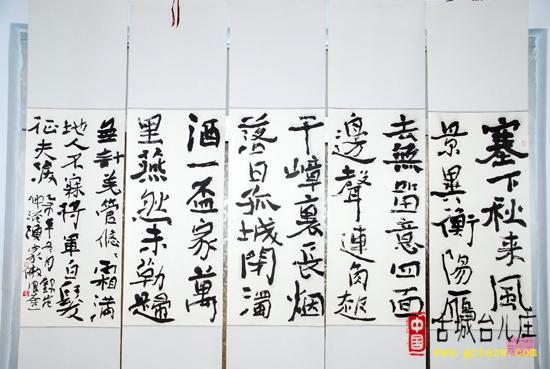 塞下秋来风
景異衡陽雁
去無留意四面
邊聲連角起
千嶂裏长烟
落日孤城閉濁
酒一盃家萬
里燕然未勒歸
無計羌管悠〻霜满
地人不寐将軍白髮
征夫淚
中国
古城台儿庄